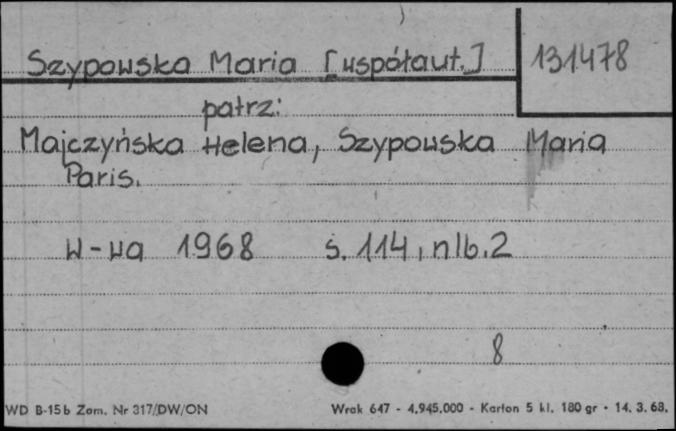 Szypowska Maria [współaut.] 131478
patrz:
Majczyńska Helena, Szypowska Maria
Paris.
W-wa 1968 s. 114, nlb. 2
8
WD B-15b Zam. Nr 317/DW/ON Wrak 647 - 4.945.000 - Karton 5 kl. 180 gr - 14. 3. 68.